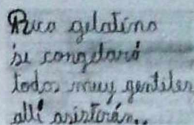 Rica gelatina
se congelará
todos muy gentiles
allí asistirán..